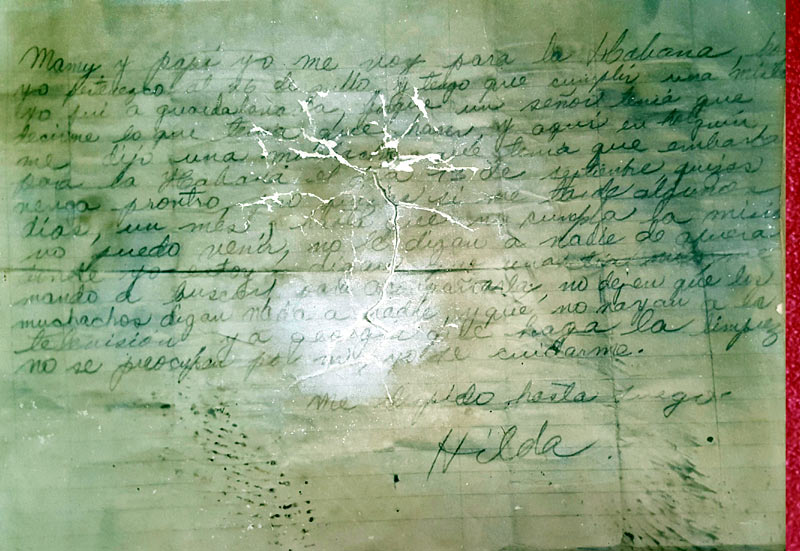 Mamy y papi yo me voy para la Habana,
yo pertenesco al 26 de y tengo que cumplir una
yo fui a guardalabarca porque un señor tenía que
decirme lo que tenia que hacer, y aquí en Holguín
me dijo una que tenia que embarcar
para la Habana el día de septiembre quizas
venga prontro, o quizas si me tarde algunos
días, un mes, hasta que no cumpla la
no puedo venir, no le digan a nadie de afuera
donde yo estoy, digan que una
mando a buscar para acompañarla, no dejen que los
muchachos digan nada a nadie, y que, no vayan a la
televisión y a georgia que le haga la limpiez
no se preocupen por mi, yo se cuidarme.
me despido hasta luego.
Hilda